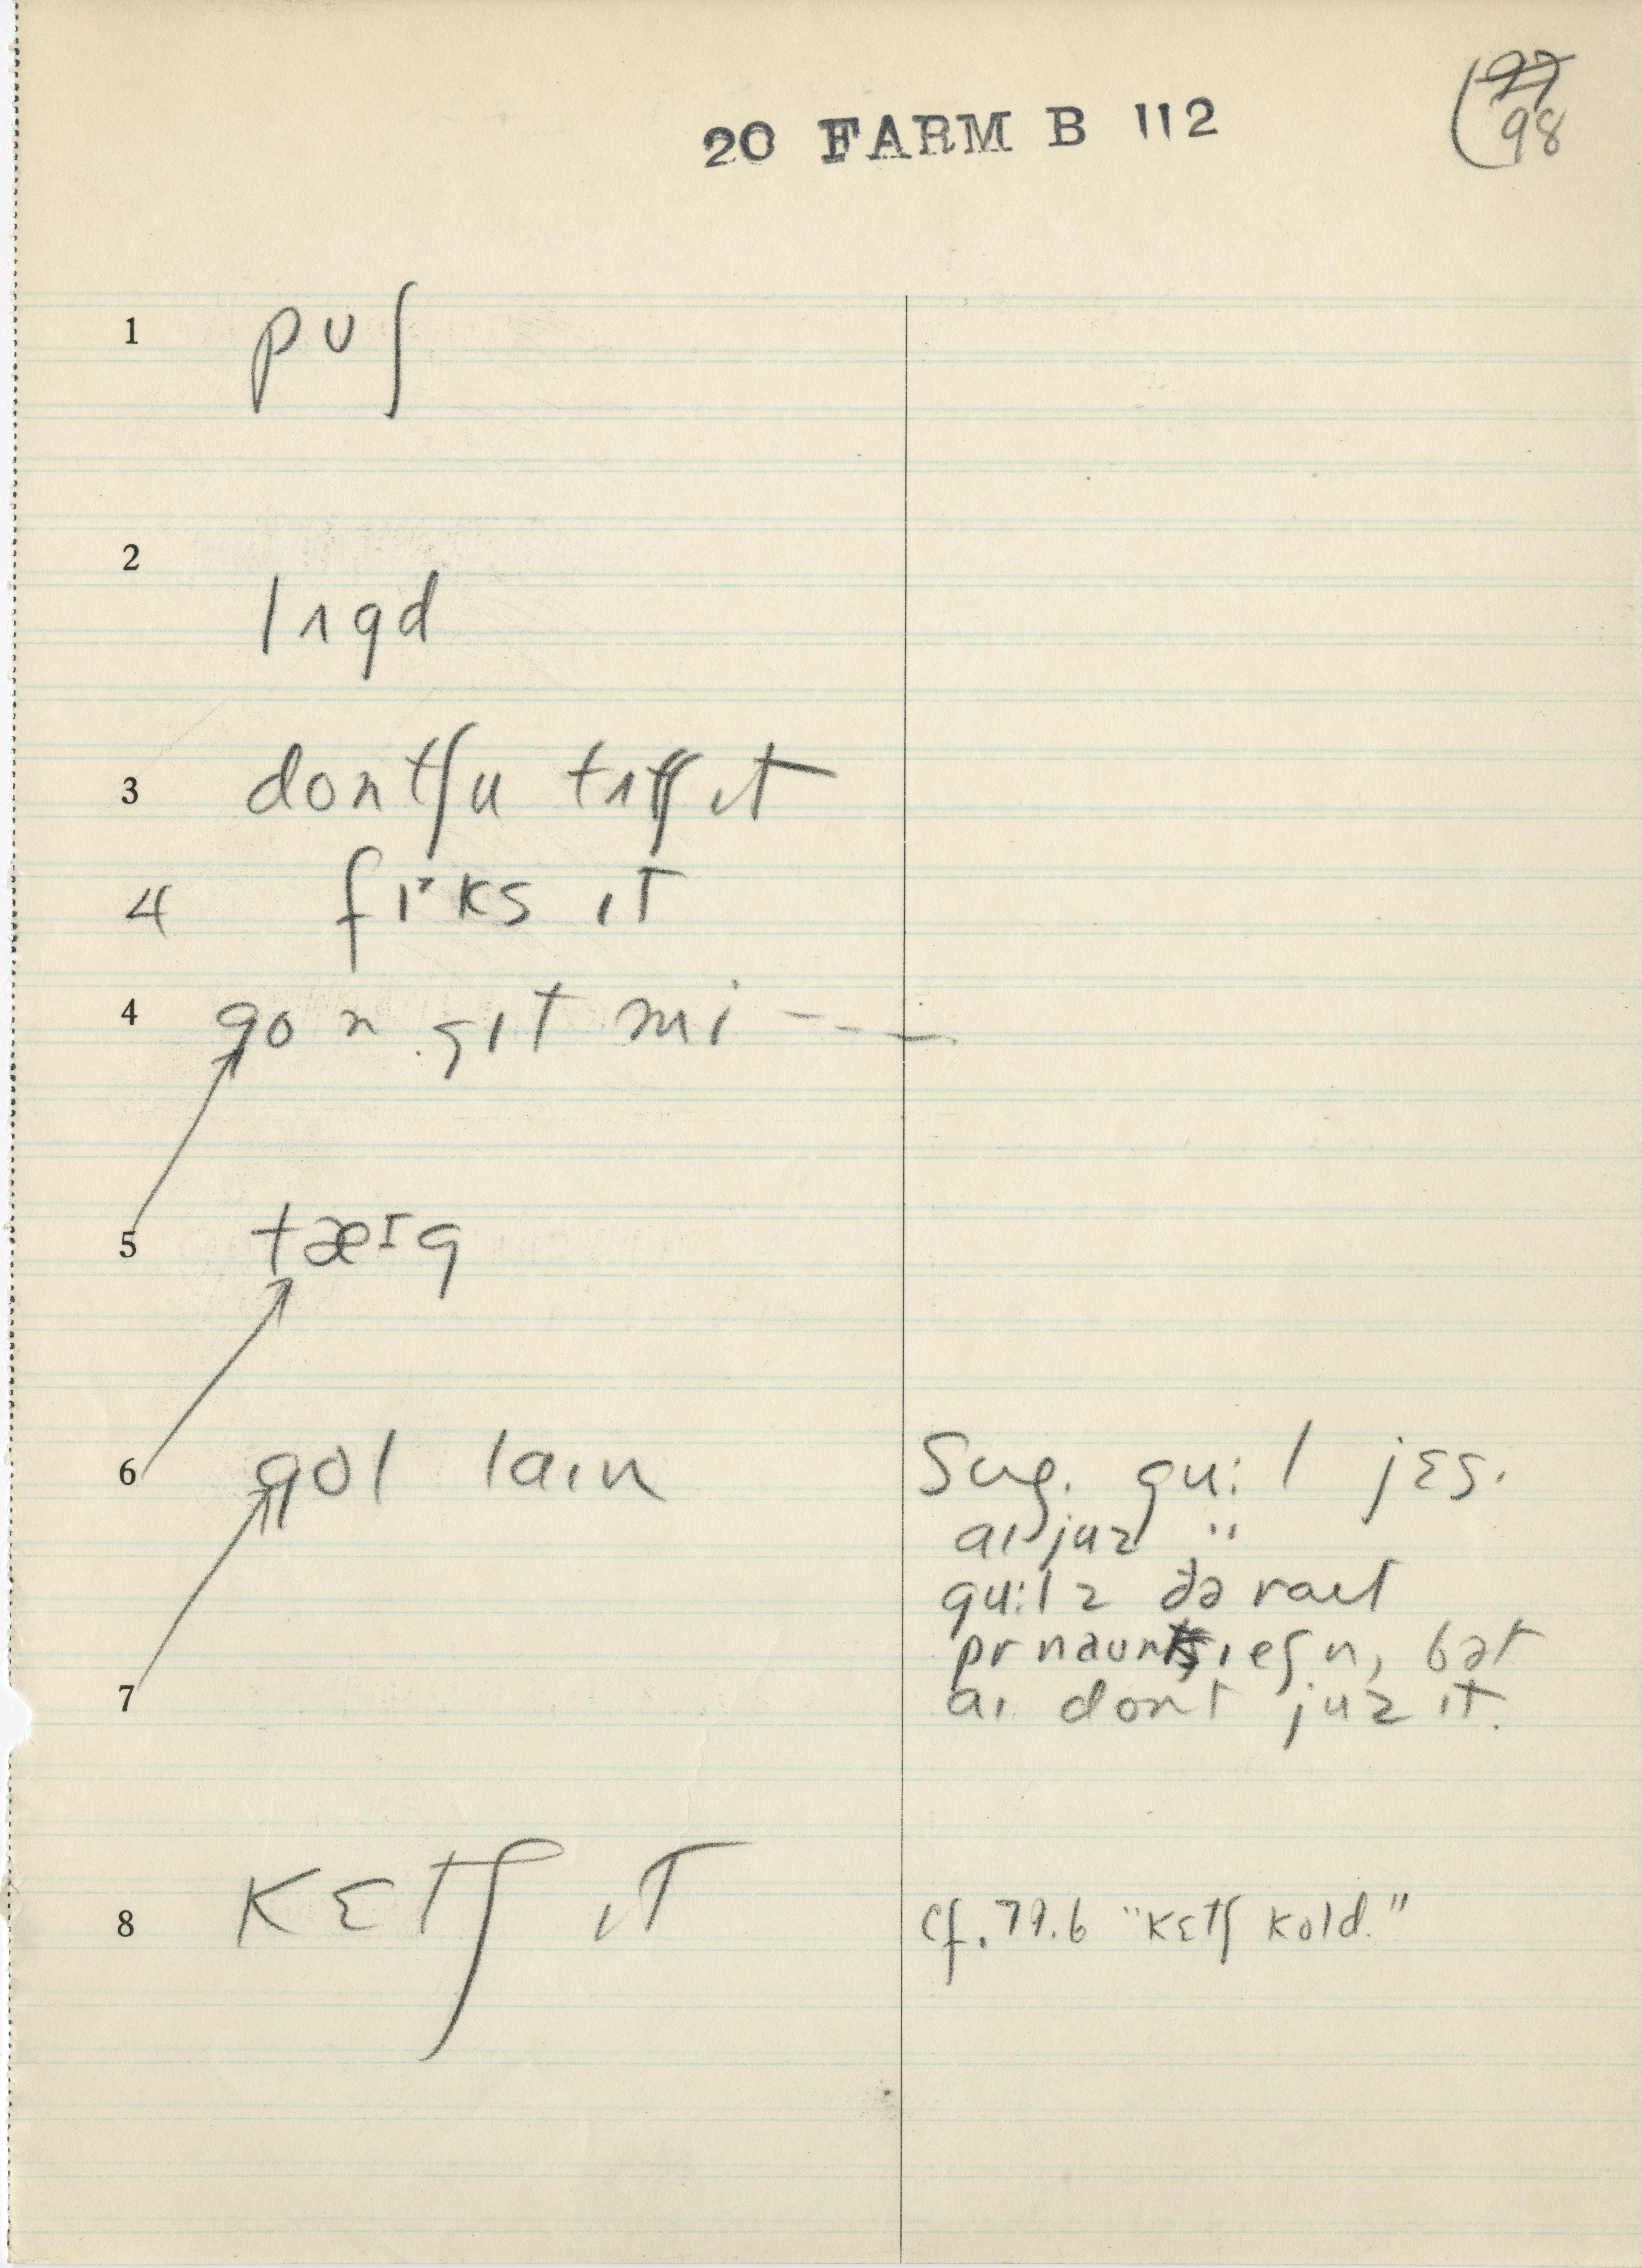 20 FARM B 112
97
98
1 pʊʃ
2 lʌgd
3 dontʃu tʌtʃ ɪt
4 fɪˑks ɪt
4 go n gɪt mi - - -
5 tæɪg
6 gol laɪn Sug. gu:l jɛs.
aɪ juz "
gu:l z ðə raɪt
prnaunsɪeʃn, bət
7 aɪ dont juz ɪt.
8 kɛtʃ ɪt cf. 79.6 "kɛtʃ kold."